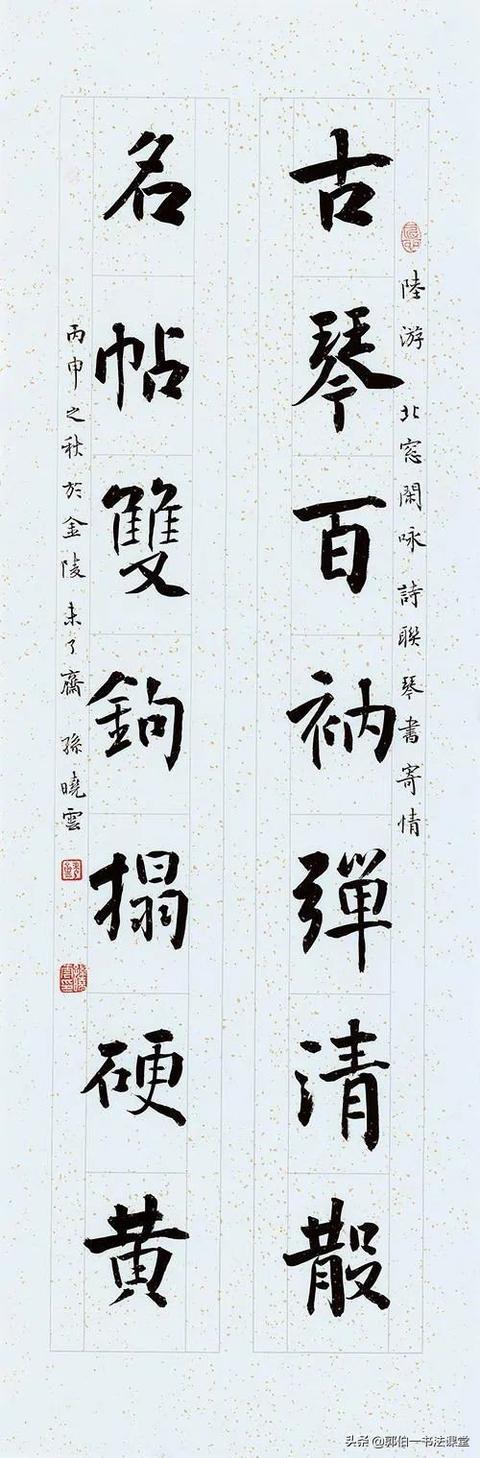 陸游 北窓閑咏 詩聯 琴書寄情
古琴百衲彈清散
名帖雙鉤搨硬黃
丙申之秋於金陵未了齋 孫曉雲
头条 @郭伯一书法课堂